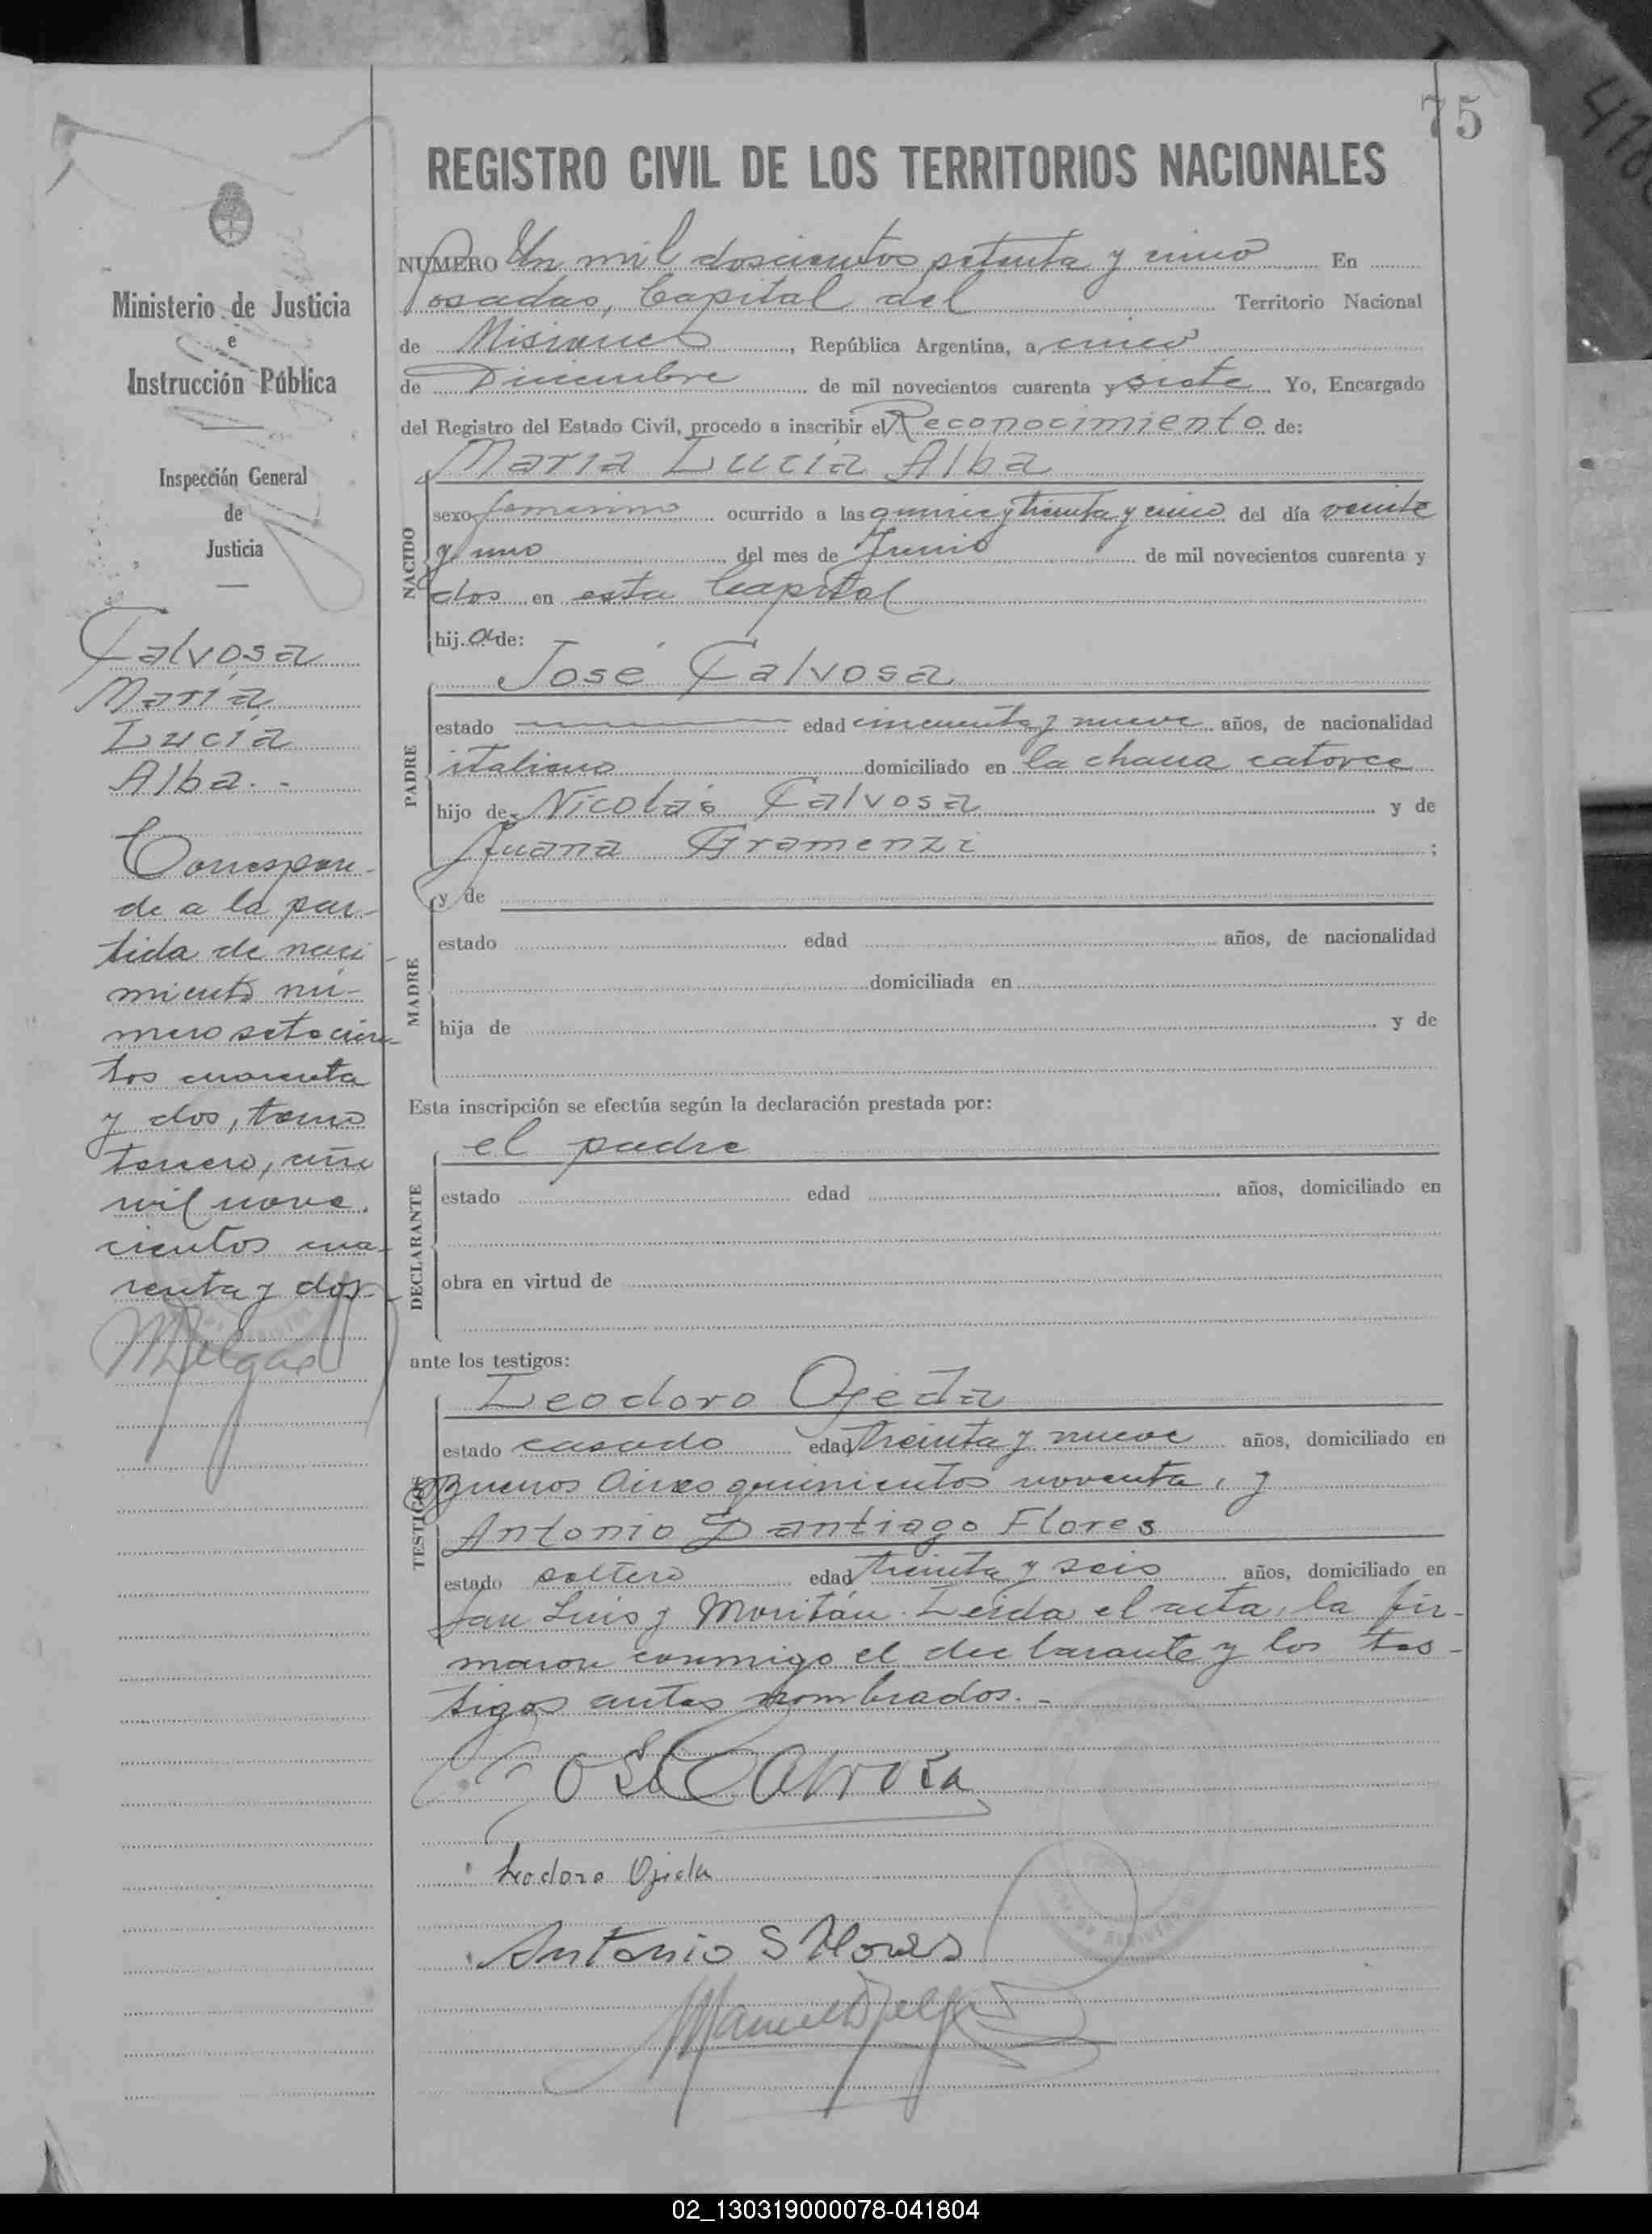 75
REGISTRO CIVIL DE LOS TERRITORIOS NACIONALES
Ministerio de Justicia
e
Instrucción Pública
Inspección General
de
Justicia
Calvosa
María
Lucía
Alba.-
Correspon-
de a la par-
tida de naci-
miento nú-
mero setecien-
tos cuarenta
y dos, tomo
tercero, año
mil nove-
cientos cua-
renta y dos-
MDelgado
NUMERO Un mil doscientos setenta y cinco En
Posadas, Capital del Territorio Nacional
de Misiones, República Argentina, a cinco
de Diciembre de mil novecientos cuarenta y siete Yo, Encargado
del Registro del Estado Civil, procedo a inscribir el Reconocimiento de:
María Lucía Alba
NACIDO
sexo femenino ocurrido a las quince y treinta y cinco del día veinte
y uno del mes de Junio de mil novecientos cuarenta y
dos en esta Capital
hija de:
José Calvosa
PADRE
estado edad cincuenta y nueve años, de nacionalidad
italiano domiciliado en la chacra catorce
hijo de Nicolás Calvosa y de
Juana Gramenzi ;
y de
MADRE
estado edad años, de nacionalidad
domiciliada en
hija de y de
Esta inscripción se efectúa según la declaración prestada por:
el padre
DECLARANTE
estado edad años, domiciliado en
obra en virtud de
ante los testigos:
Leodoro Ojeda
TESTIGOS
estado casado edad treinta y nueve años, domiciliado en
Buenos Aires quinientos noventa, y
Antonio Santiago Flores
estado soltero edad treinta y seis años, domiciliado en
San Luis y Moritán. Leída el acta, la fir-
maron conmigo el declarante y los tes-
tigos antes nombrados.-
José Calvosa
Leodoro Ojeda
Antonio S Flores
Manuel Delgado
02_130319000078-041804